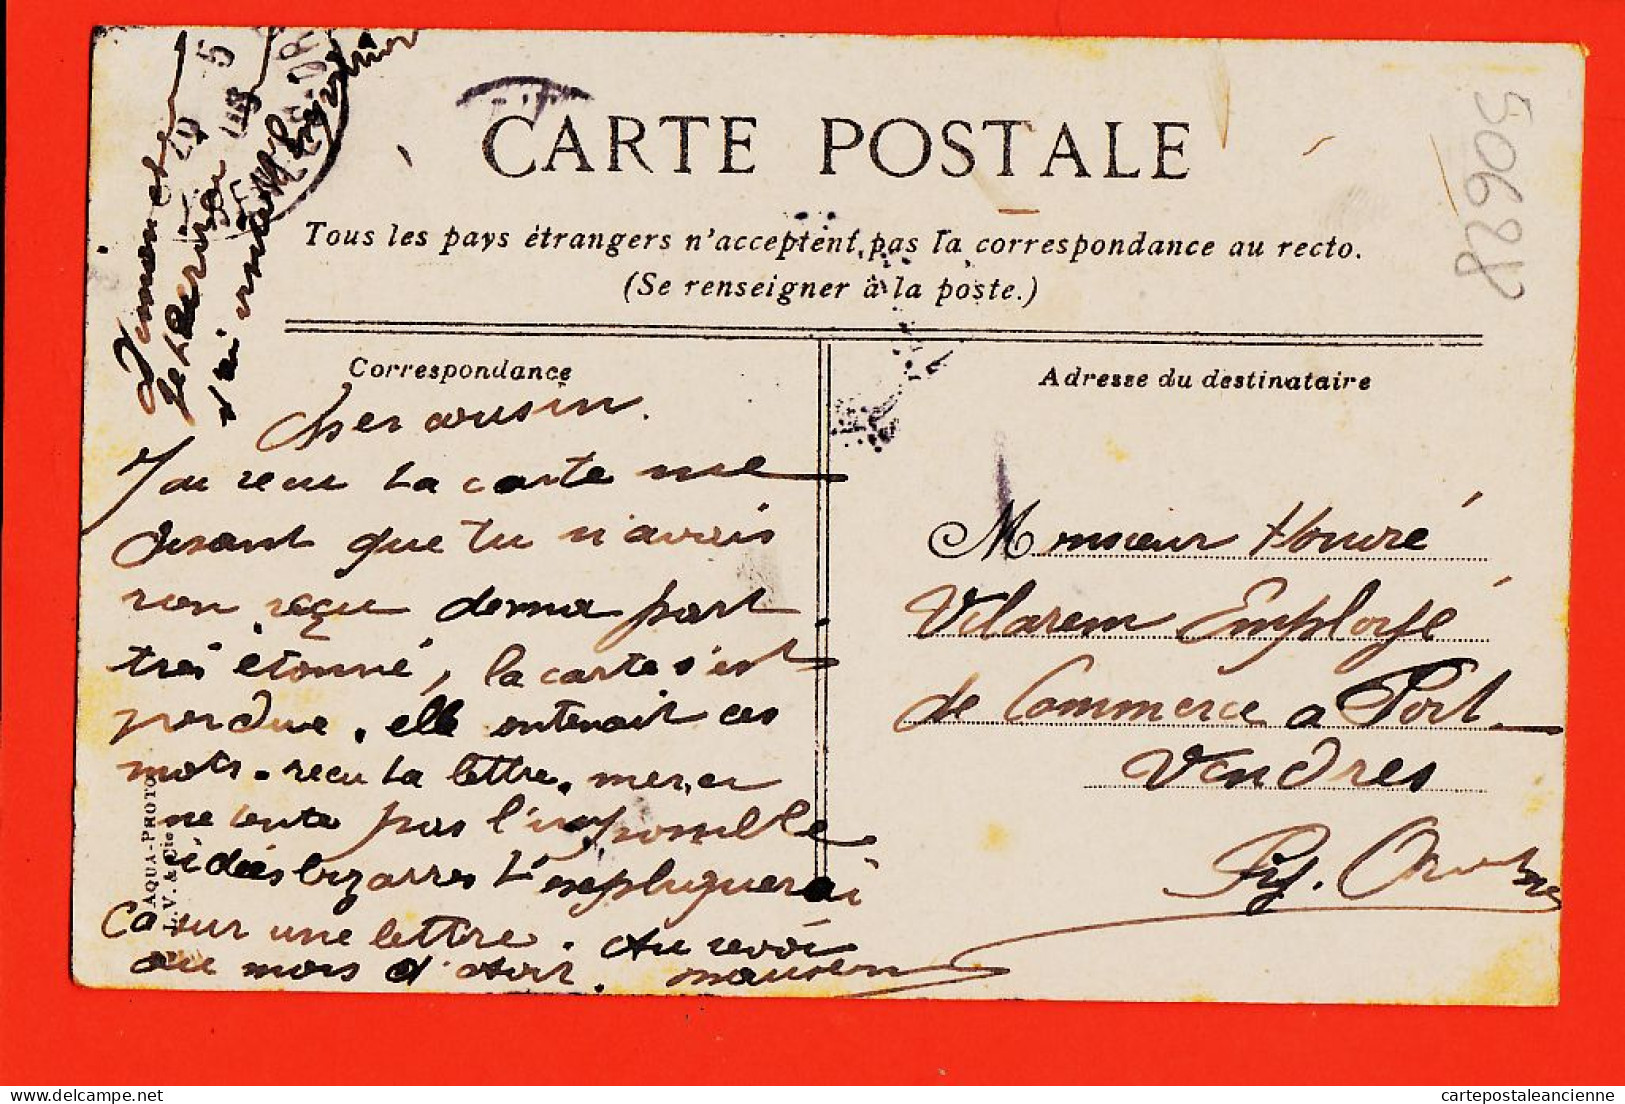 CARTE POSTALE
Tous les pays étrangers n'acceptent pas la correspondance au recto.
(Se renseigner à la poste.)
Correspondance
Cher cousin.
J'ai recu ta carte me
disant que tu n'avais
rien reçu de ma part
très étonné, la carte s'est
perdue. elle contenait ces
mots. recu ta lettre. merci
ne tente pas l'impossible
idées bizarres t'expliquerai
Ca sur une lettre. Au revoir
au mois d'Aout.
Adresse du destinataire
Monsieur Honoré
Vilarem Employé
de Commerce a Port
Vendres
Py. Or.
AQUA-PHOTO
L.V. & Cie
50628
cartepostaleancienne